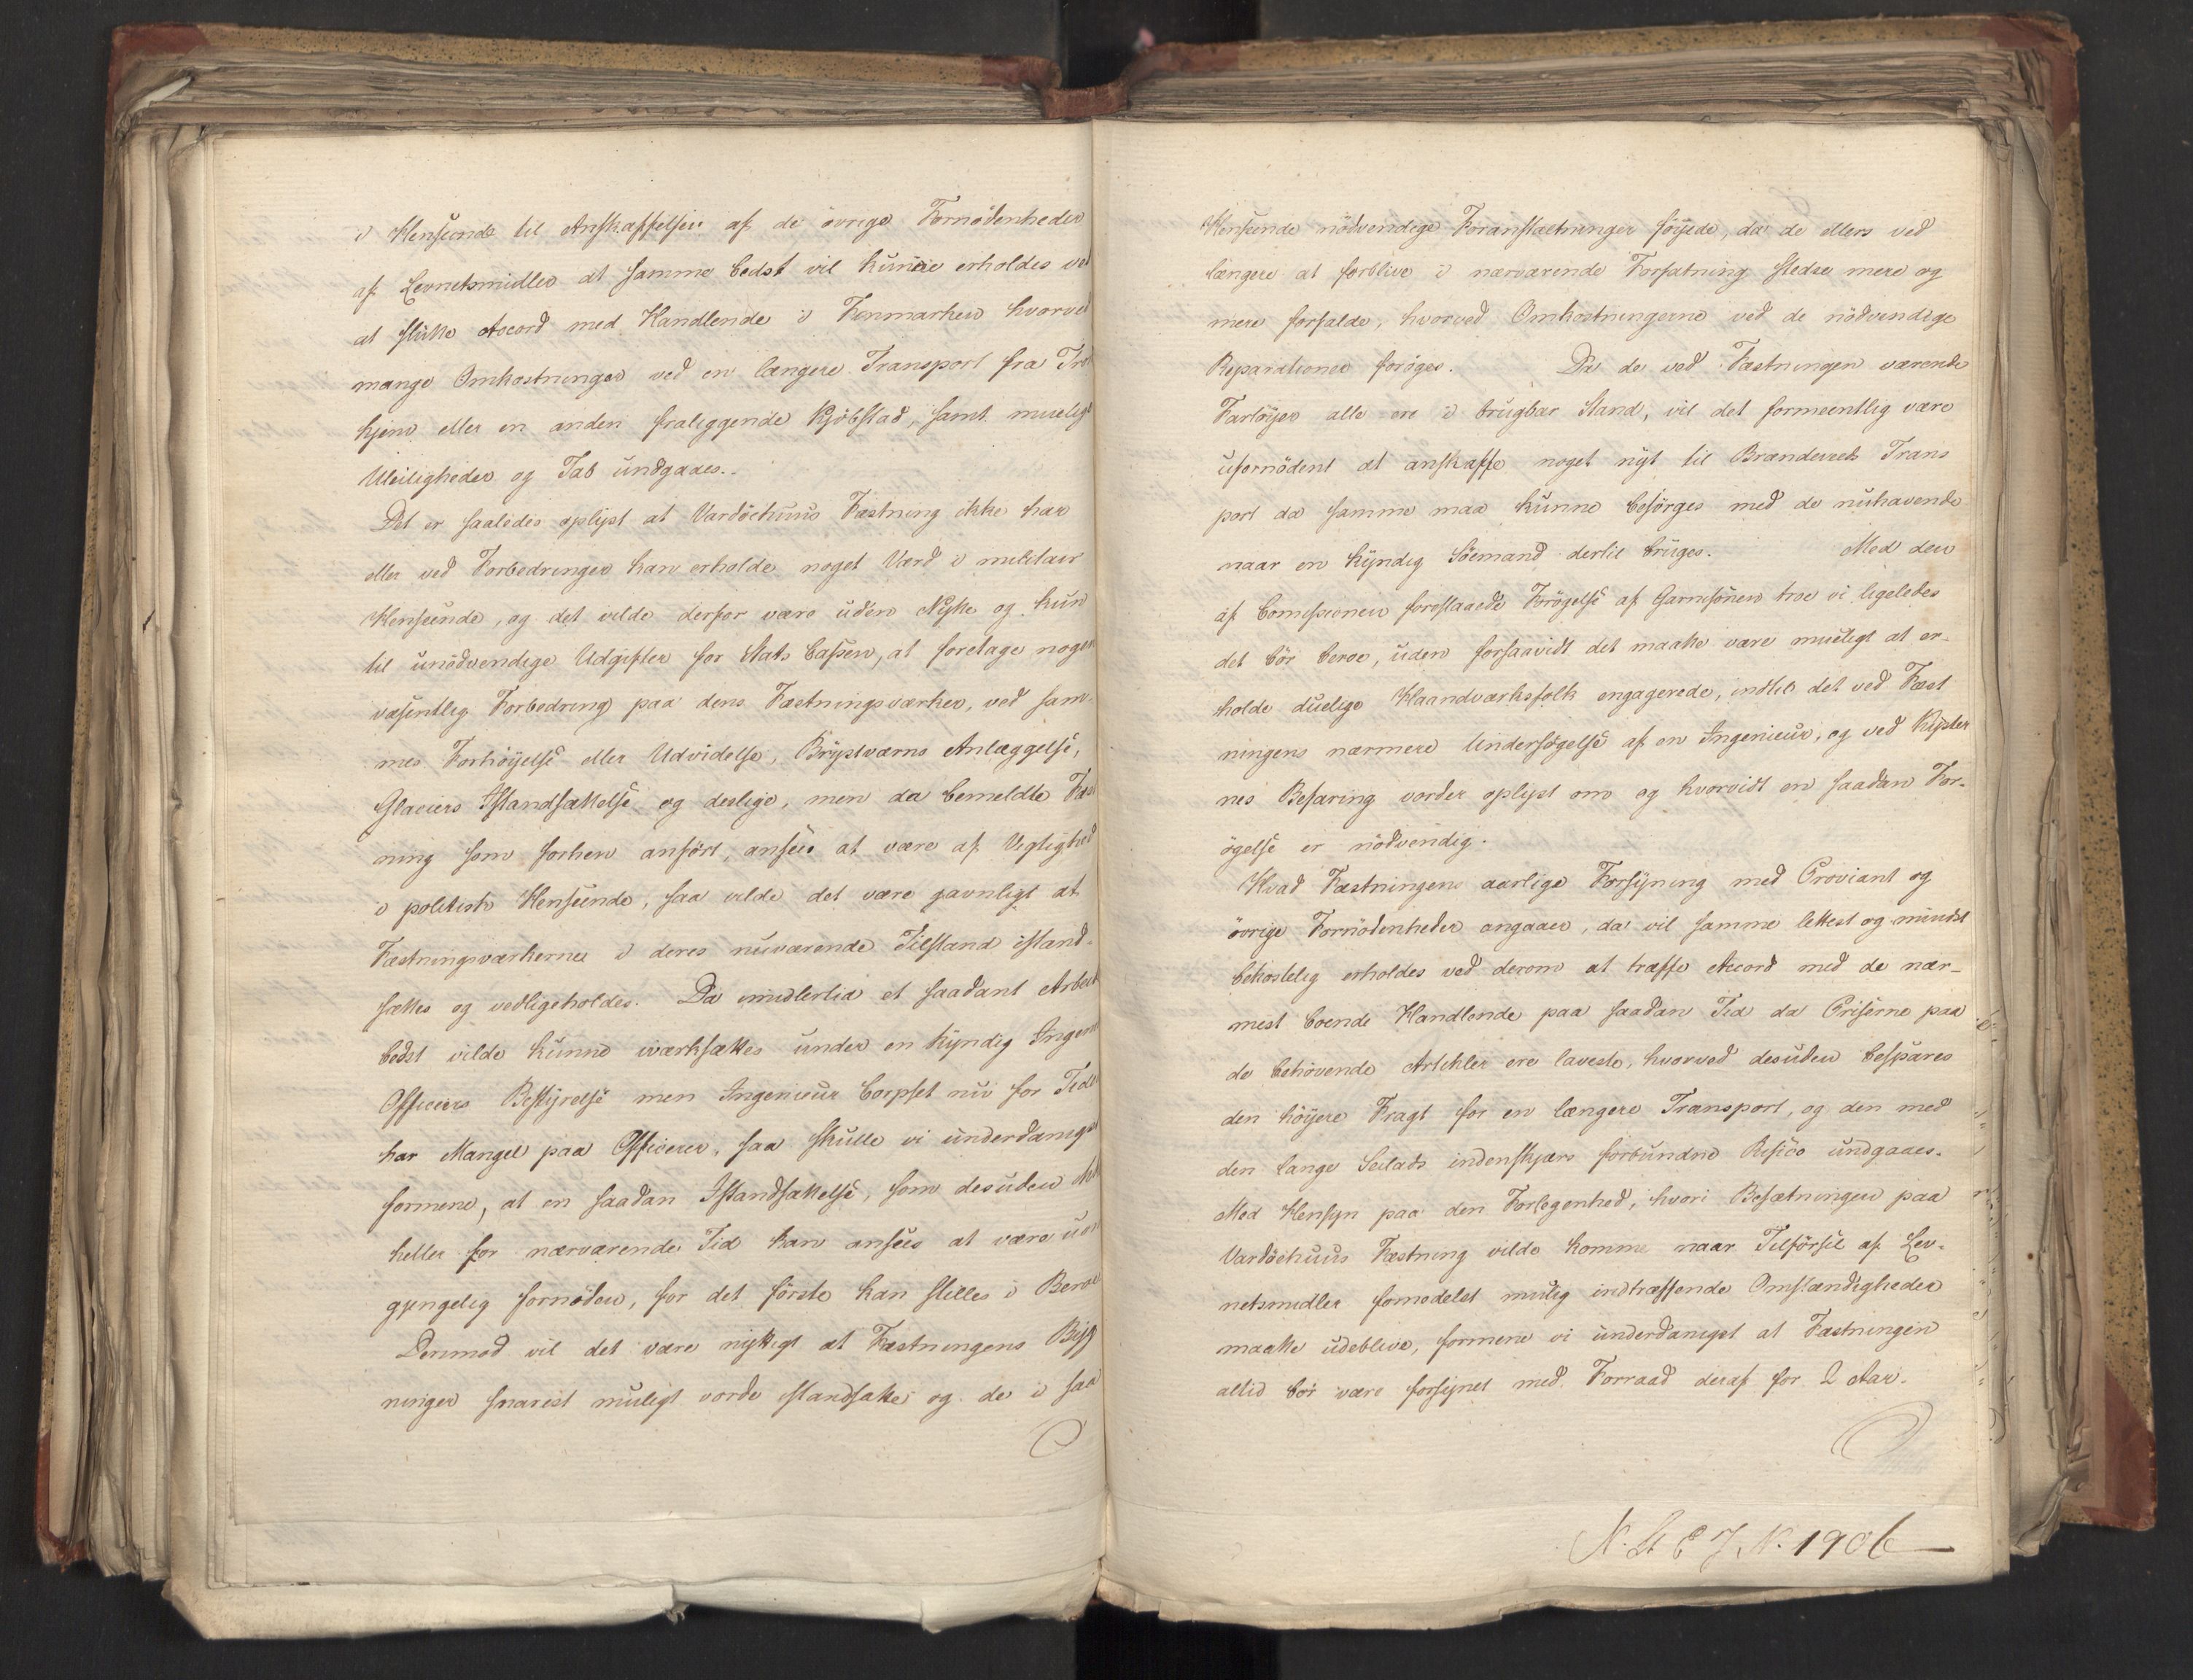 i Henseende til Anskaffelsen af de övrige Fornödenheder
af Levnetsmidler at samme bedst vil kunne erholdes ved
at slutte Accord med Handlende i Finmarken hvorved
mange Omkostninger ved en længere Transport fra Tron
hjem eller en anden fraliggende Kjöbstad, samt muelige
Uleiligheder og Tab undgaaes.
Det er saaledes oplyst at Vardöehuus Fæstning ikke har
eller ved Forbedringer kan erholde noget Værd i militair
Henseende, og det vilde derfor være uden Nytte og kun
til unödvendige Udgifter for Stats Cassen, at foretage nogen
væsentlig Forbedring paa dens Fæstningsværker, ved sam-
mes Forhöyelse eller Udvidelse, Brystværns Anlæggelse,
Glaciers Istandsættelse og deslige, men da bemeldte Fæst
ning som forhen anfört, ansees at være af Vigtighed
i politisk Henseende, saa vilde det være gavnligt at
Fæstningsværkerne i deres nuværende Tilstand istand-
sættes og vedligeholdes. Da imidlertid et saadant Arbeid
bedst vilde kunne iværksættes under en kyndig Ingeni
Officiers Bestyrelse men Ingenieur Corpset nu for Tide
har Mangel paa Officerer, saa skulle vi underdanigst
formene, at en saadan Istandsættelse, som desuden ikke
heller for nærværende Tid kan ansees at være uom
gjengelig fornöden, for det förste kan stilles i Beroe
Derimod vil det være nyttigt at Fæstningens Byg
ninger snarest muligt vorde istandsatte og de i saa
Henseende nödvendige Foranstaltninger föyede, da de ellers ved
længere at forblive i nærværende Forfatning stedse mere og
mere forfalde, hvorved Omkostningerne ved de nödvendige
Reparationer foröges. Da de ved Fæstningen værende
Fartöyer alle ere i brugbar Stand, vil det formeentlig være
ufornödent at anskaffe noget nyt til Brændeveds Trans
port da samme maa kunne besörges med de nuhavende
naar en kyndig Söemand dertil bruges. Med den
af Comissionen foreslaaede Forögelse af Garnisonen troe vi ligeledes
det bör beroe, uden forsaavidt det maatte være mueligt at er-
holde duelige Haandværksfolk engagerede, indtil det ved Fæst
ningens nærmere Undersögelse af en Ingenieur, og ved Kyster
nes Befaring vorder oplyst om og hvorvidt en saadan For-
ögelse er nödvendig.
Hvad Fæstningens aarlige Forsyning med Proviant og
övrige Fornödenheder angaaer, da vil samme lettest og mindst
bekostelig erholdes ved derom at træffe Accord med de nær-
mest boende Handlende paa saadan Tid da Priserne paa
de behövende Artikler ere laveste, hvorved desuden bespares
den höyere Fragt for en længere Transport, og den med
den lange Seilads indenskjærs forbundne Risico undgaaes.
Med Hensyn paa den Forlegenhed, hvori Besætningen paa
Vardöehuus Fæstning vilde komme naar Tilförsel af Lev-
netsmidler fomedelst mulig indtræffende Omstændigheder
maatte udeblive, formene vi underdanigst at Fæstningen
altid bör være forsynet med Forraad deraf for 2 Aar.